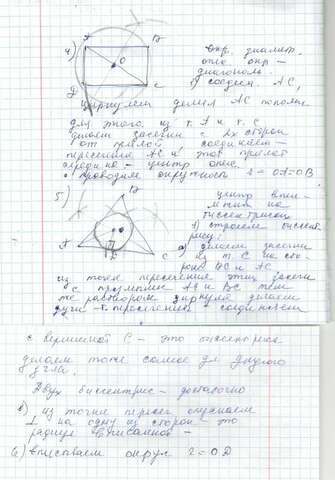 4)
A
B
O
Д
C
окр. диамет.
диагональ.
1) соедин. AC,
циркулем делим AC пополам
для этого из т. A и т. C
делаем засечки с 2х сторон
от прямой, соединяем
пересечение AC и этой прямой
центр опис.
проводим окружность r = OA = OB
5)
B
A
C
центр впис
биссектрисы
1) строем биссект
рису:
а) делаем засечки
из т. C на сто
роне BC и AC
из точек пересечения этих засечек
с прямыми AC и BC тем
же раствором циркуля делаем
дуги т. пересечения соединяем
с вершиной C - это биссектриса
делаем тоже самое дл другого
угла.
Двух биссектрис - достаточно
в) из точки перес опускаем
⊥ на одну из сторон - это
радиус вписанной -
6) вписываем окруж r = OД